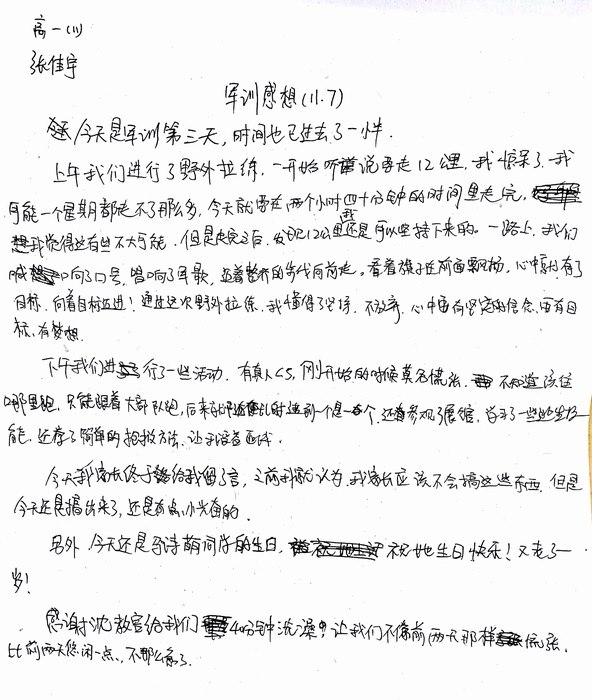 高一(11)
张佳宇
军训感想(11.7)
今天是军训第三天,时间也已过去了一小半.
上午我们进行了野外拉练,一开始听说要走12公里,我惊呆了.我
可能一个星期都走不了那么多,今天就要走两个小时四十分钟的时间里走完,
我觉得这有些不大可能.但是走完之后,发现12公里我还是可以坚持下来的.一路上,我们
喊响了口号,唱响了军歌,迈着整齐的步伐向前走.看着旗子在前面飘扬,心中就有了
目标,向着目标迈进!通过这次野外拉练,我懂得了坚持,不放弃,心中要有坚定的信念,要有目
标,有梦想.
下午我们进行了一些活动.有真人CS,刚开始的时候莫名慌张,不知道该往
哪里跑,只能跟着大部队跑,后来 一个是一个.还有参观了展馆,学习了一些
能,还有了简单的 方法,
今天我家长终于给我留了言,之前我就以为,我家长应该不会搞这些东西,但是
今天还是搞出来了,还是有点小兴奋的.
另外今天还是 诗萌同学的生日,祝她生日快乐!又老了一
岁!
感谢沈教官给我们40分钟洗澡,让我们不像前两天那样慌张,
比前两天悠闲一点,不那么